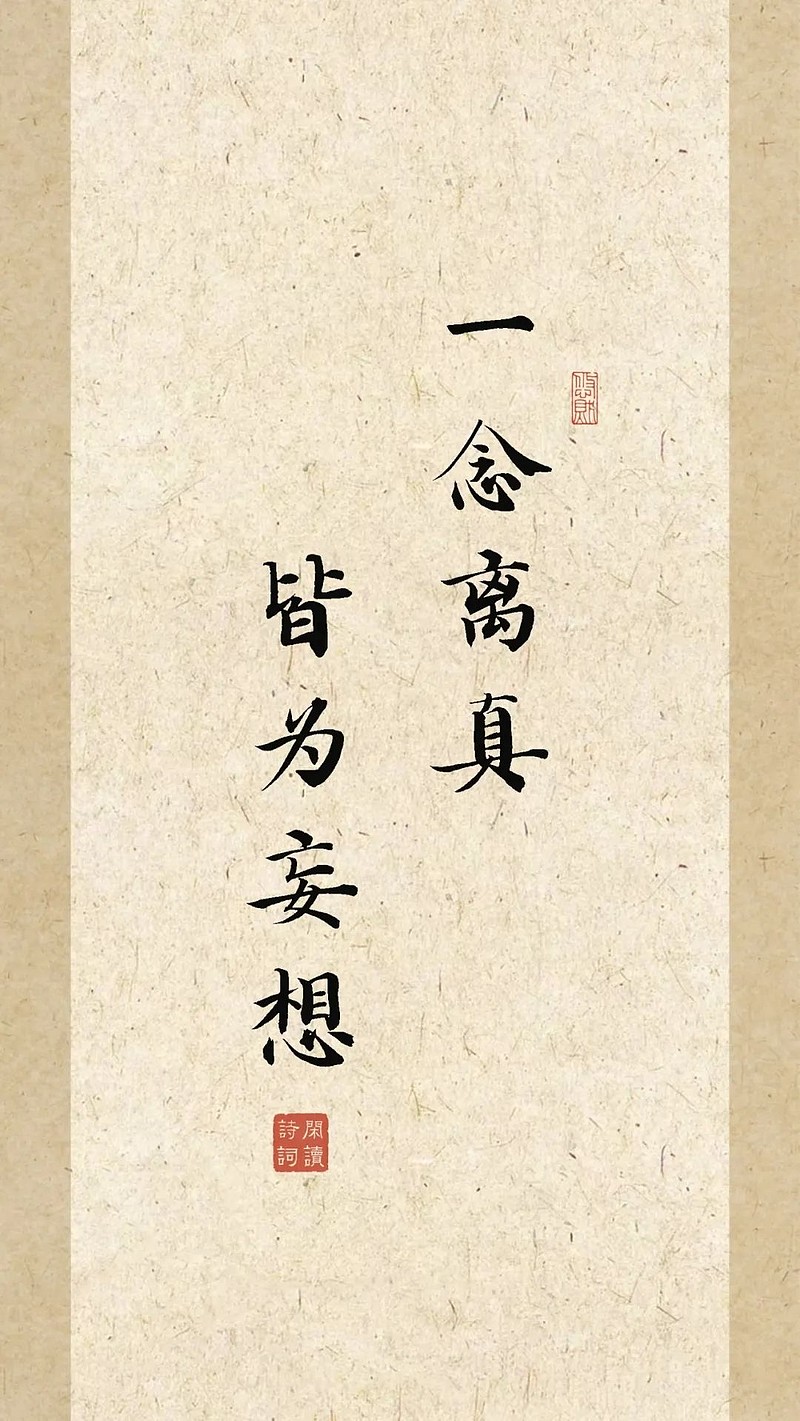 一念离真
皆为妄想
閑讀
詩詞